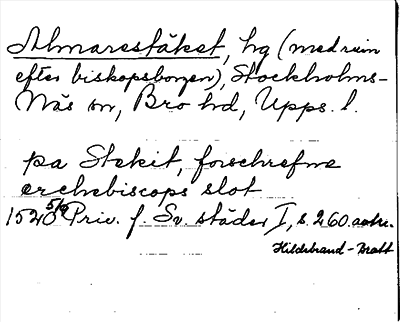 Almarestäket, hg (med ruin
efter biskopsborgen), Stockholms-
Näs sn, Bro hd, Upps. l.
pa Stekit, forschrefne
erchebiscops slot
1520 5/9 Priv. f. Sv. städer I, s. 260. aohr.
Hildebrand-Bratt